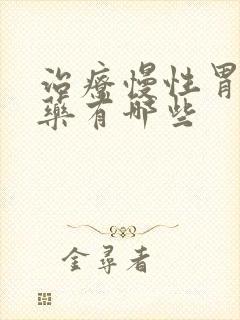 治療慢性胃
藥有哪些
金尋者